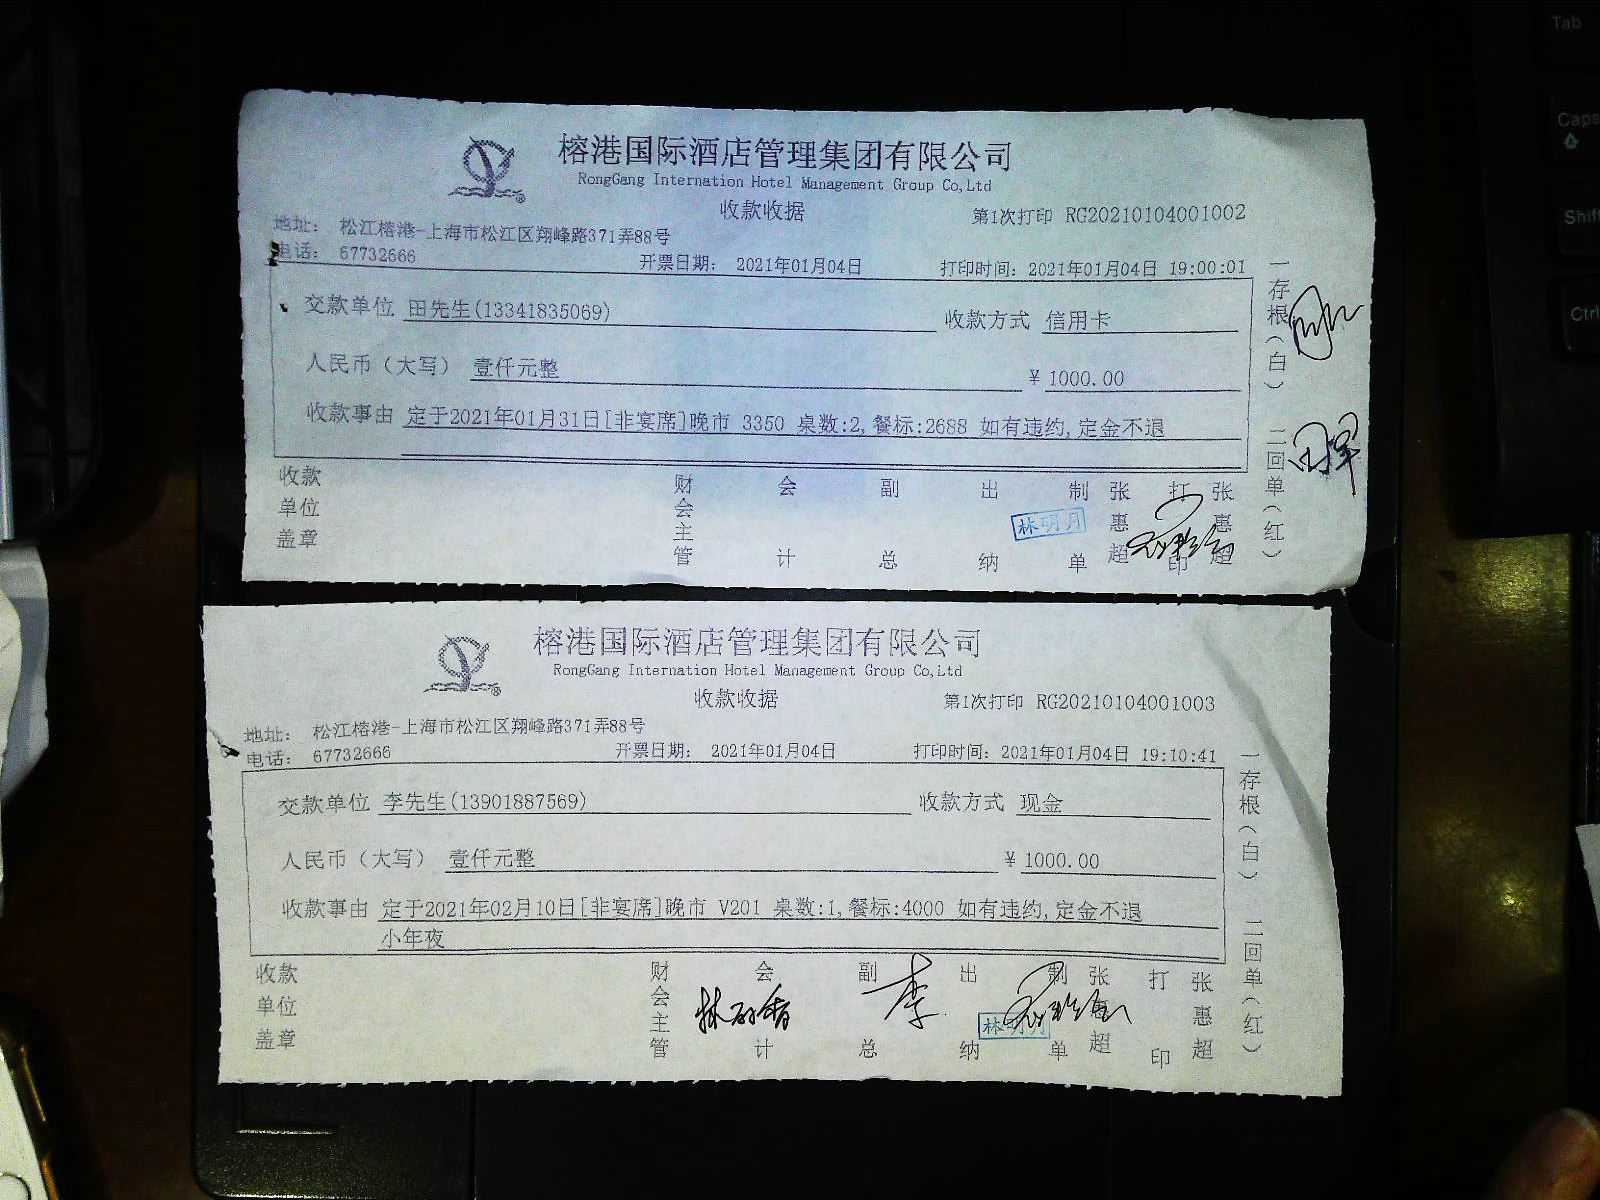 榕港国际酒店管理集团有限公司
RongGang Internation Hotel Management Group Co,Ltd
收款收据
第1次打印 RG20210104001002
地址: 松江榕港-上海市松江区翔峰路371弄88号
电话: 67732666 开票日期: 2021年01月04日 打印时间: 2021年01月04日 19:00:01
交款单位 田先生(13341835069) 收款方式 信用卡
人民币(大写) 壹仟元整 ¥ 1000.00
收款事由 定于2021年01月31日[非宴席]晚市 3350 桌数:2,餐标:2688 如有违约,定金不退
收款单位盖章 财会主管 会计 副总 出纳 林明月 制单 张惠超 打印 张惠超
一存根(白) 二回单(红)
榕港国际酒店管理集团有限公司
RongGang Internation Hotel Management Group Co,Ltd
收款收据
第1次打印 RG20210104001003
地址: 松江榕港-上海市松江区翔峰路371弄88号
电话: 67732666 开票日期: 2021年01月04日 打印时间: 2021年01月04日 19:10:41
交款单位 李先生(13901887569) 收款方式 现金
人民币(大写) 壹仟元整 ¥ 1000.00
收款事由 定于2021年02月10日[非宴席]晚市 V201 桌数:1,餐标:4000 如有违约,定金不退
小年夜
收款单位盖章 财会主管 会计 副总 李 出纳 林明月 制单 张惠超 打印 张惠超
一存根(白) 二回单(红)
Tab
Caps
Shift
Ctrl